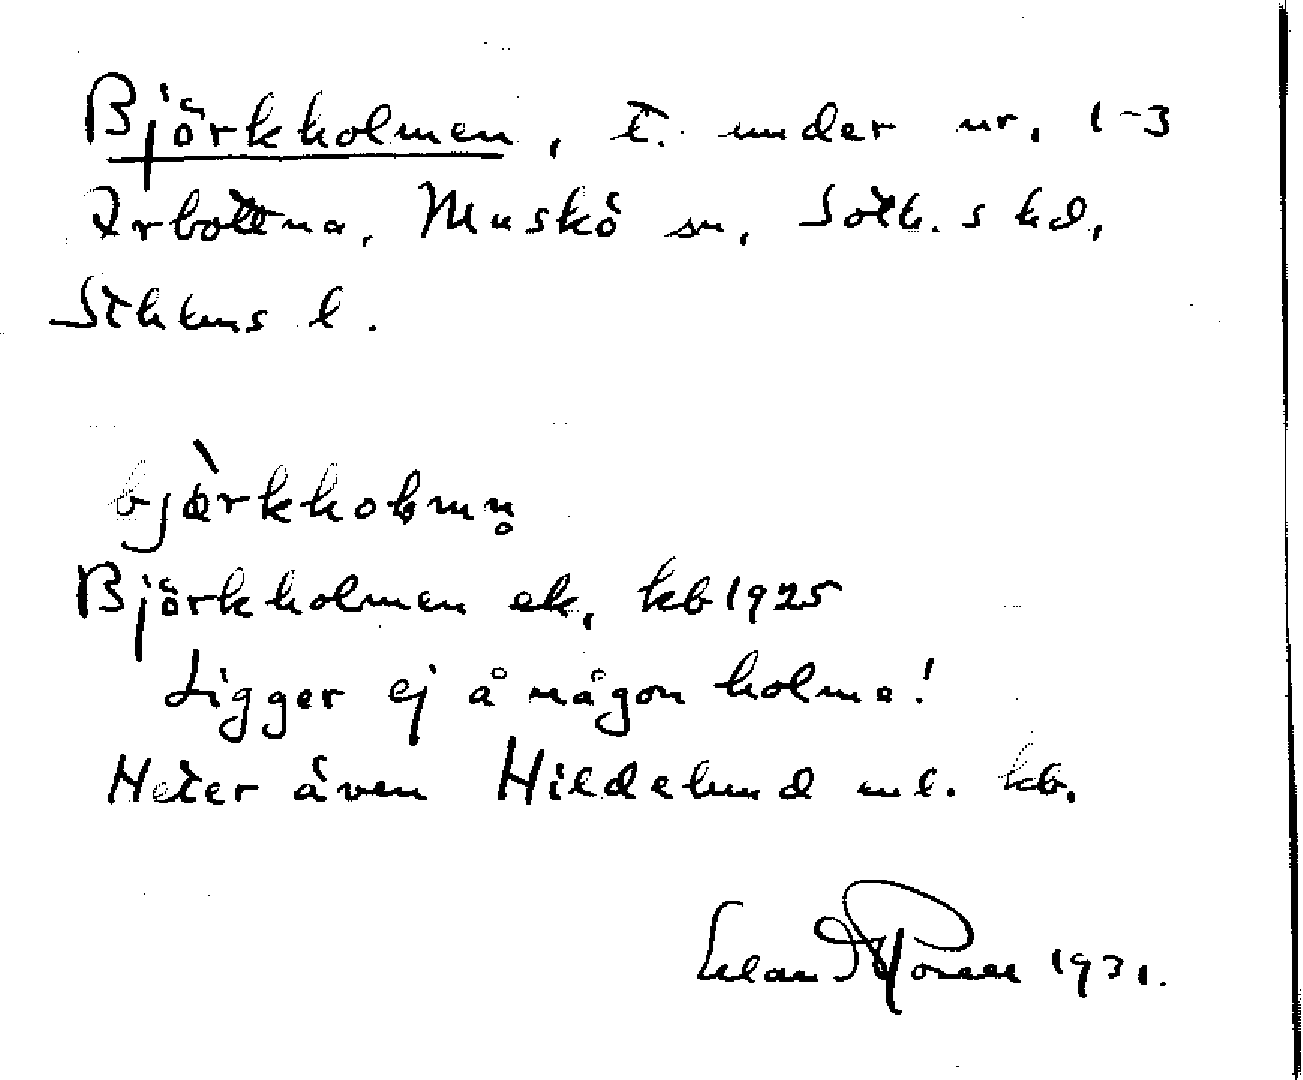 Björkholmen, t. under nr. 1-3
Arbottna, Muskö sn, Soth.s hd,
Sthlms l.
bjὰrkholmn̥
Björkholmen ek, kb 1925
Ligger ej å någon holme!
Heter även Hildelund enl. kb.
1931.